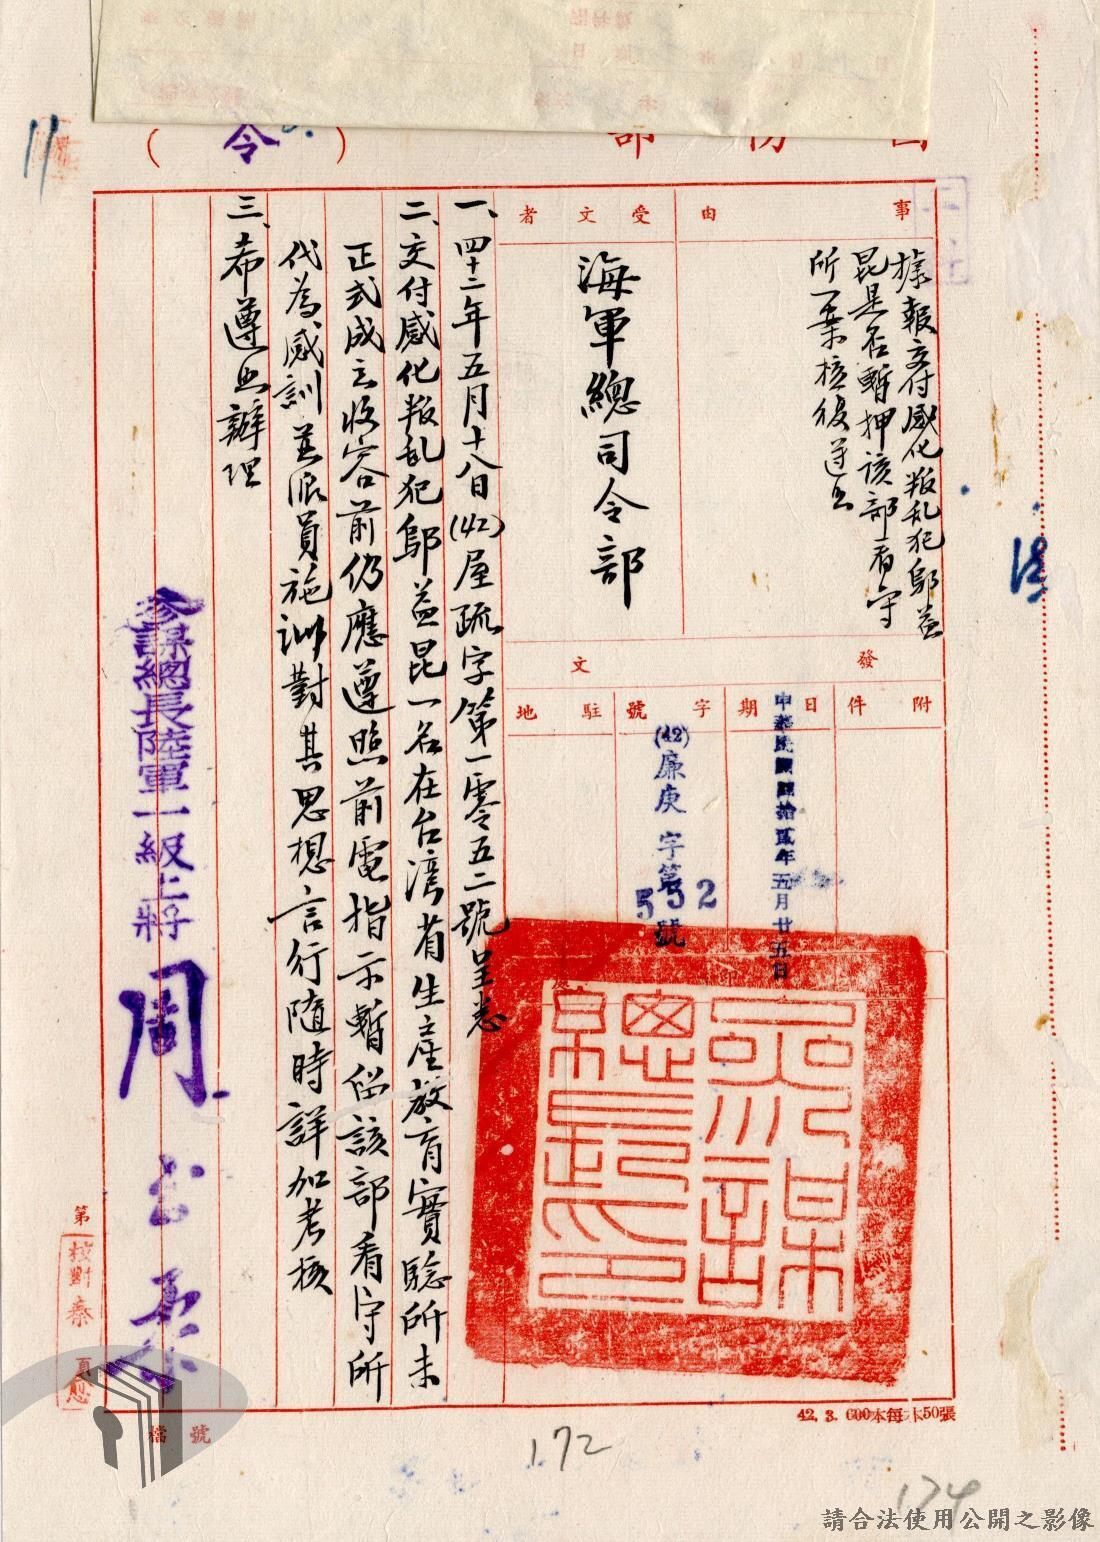 國防部
(令)
事由
據報交付感化叛乱犯鄔益
昆是否暫押該部看守
所一案核復遵照
受文者
海軍總司令部
發文
附件
日期
中華民國肆拾貳年五月廿五日
字號
(42)廉庚字第552號
駐地
參謀總長印
一、四十二年五月十八日(42)屋疏字第一零五二號呈悉
二、交付感化叛乱犯鄔益昆一名在台湾省生産教育實驗所未
正式成立收容前仍應遵照前電指示暫留該部看守所
代為感訓並派員施訓對其思想言行隨時詳加考核
三、希遵照辦理
參謀總長陸軍一級上將周至柔
第
頁
校對秦愈
檔號
42. 3. 600本每本50張
172
174
11
請合法使用公開之影像